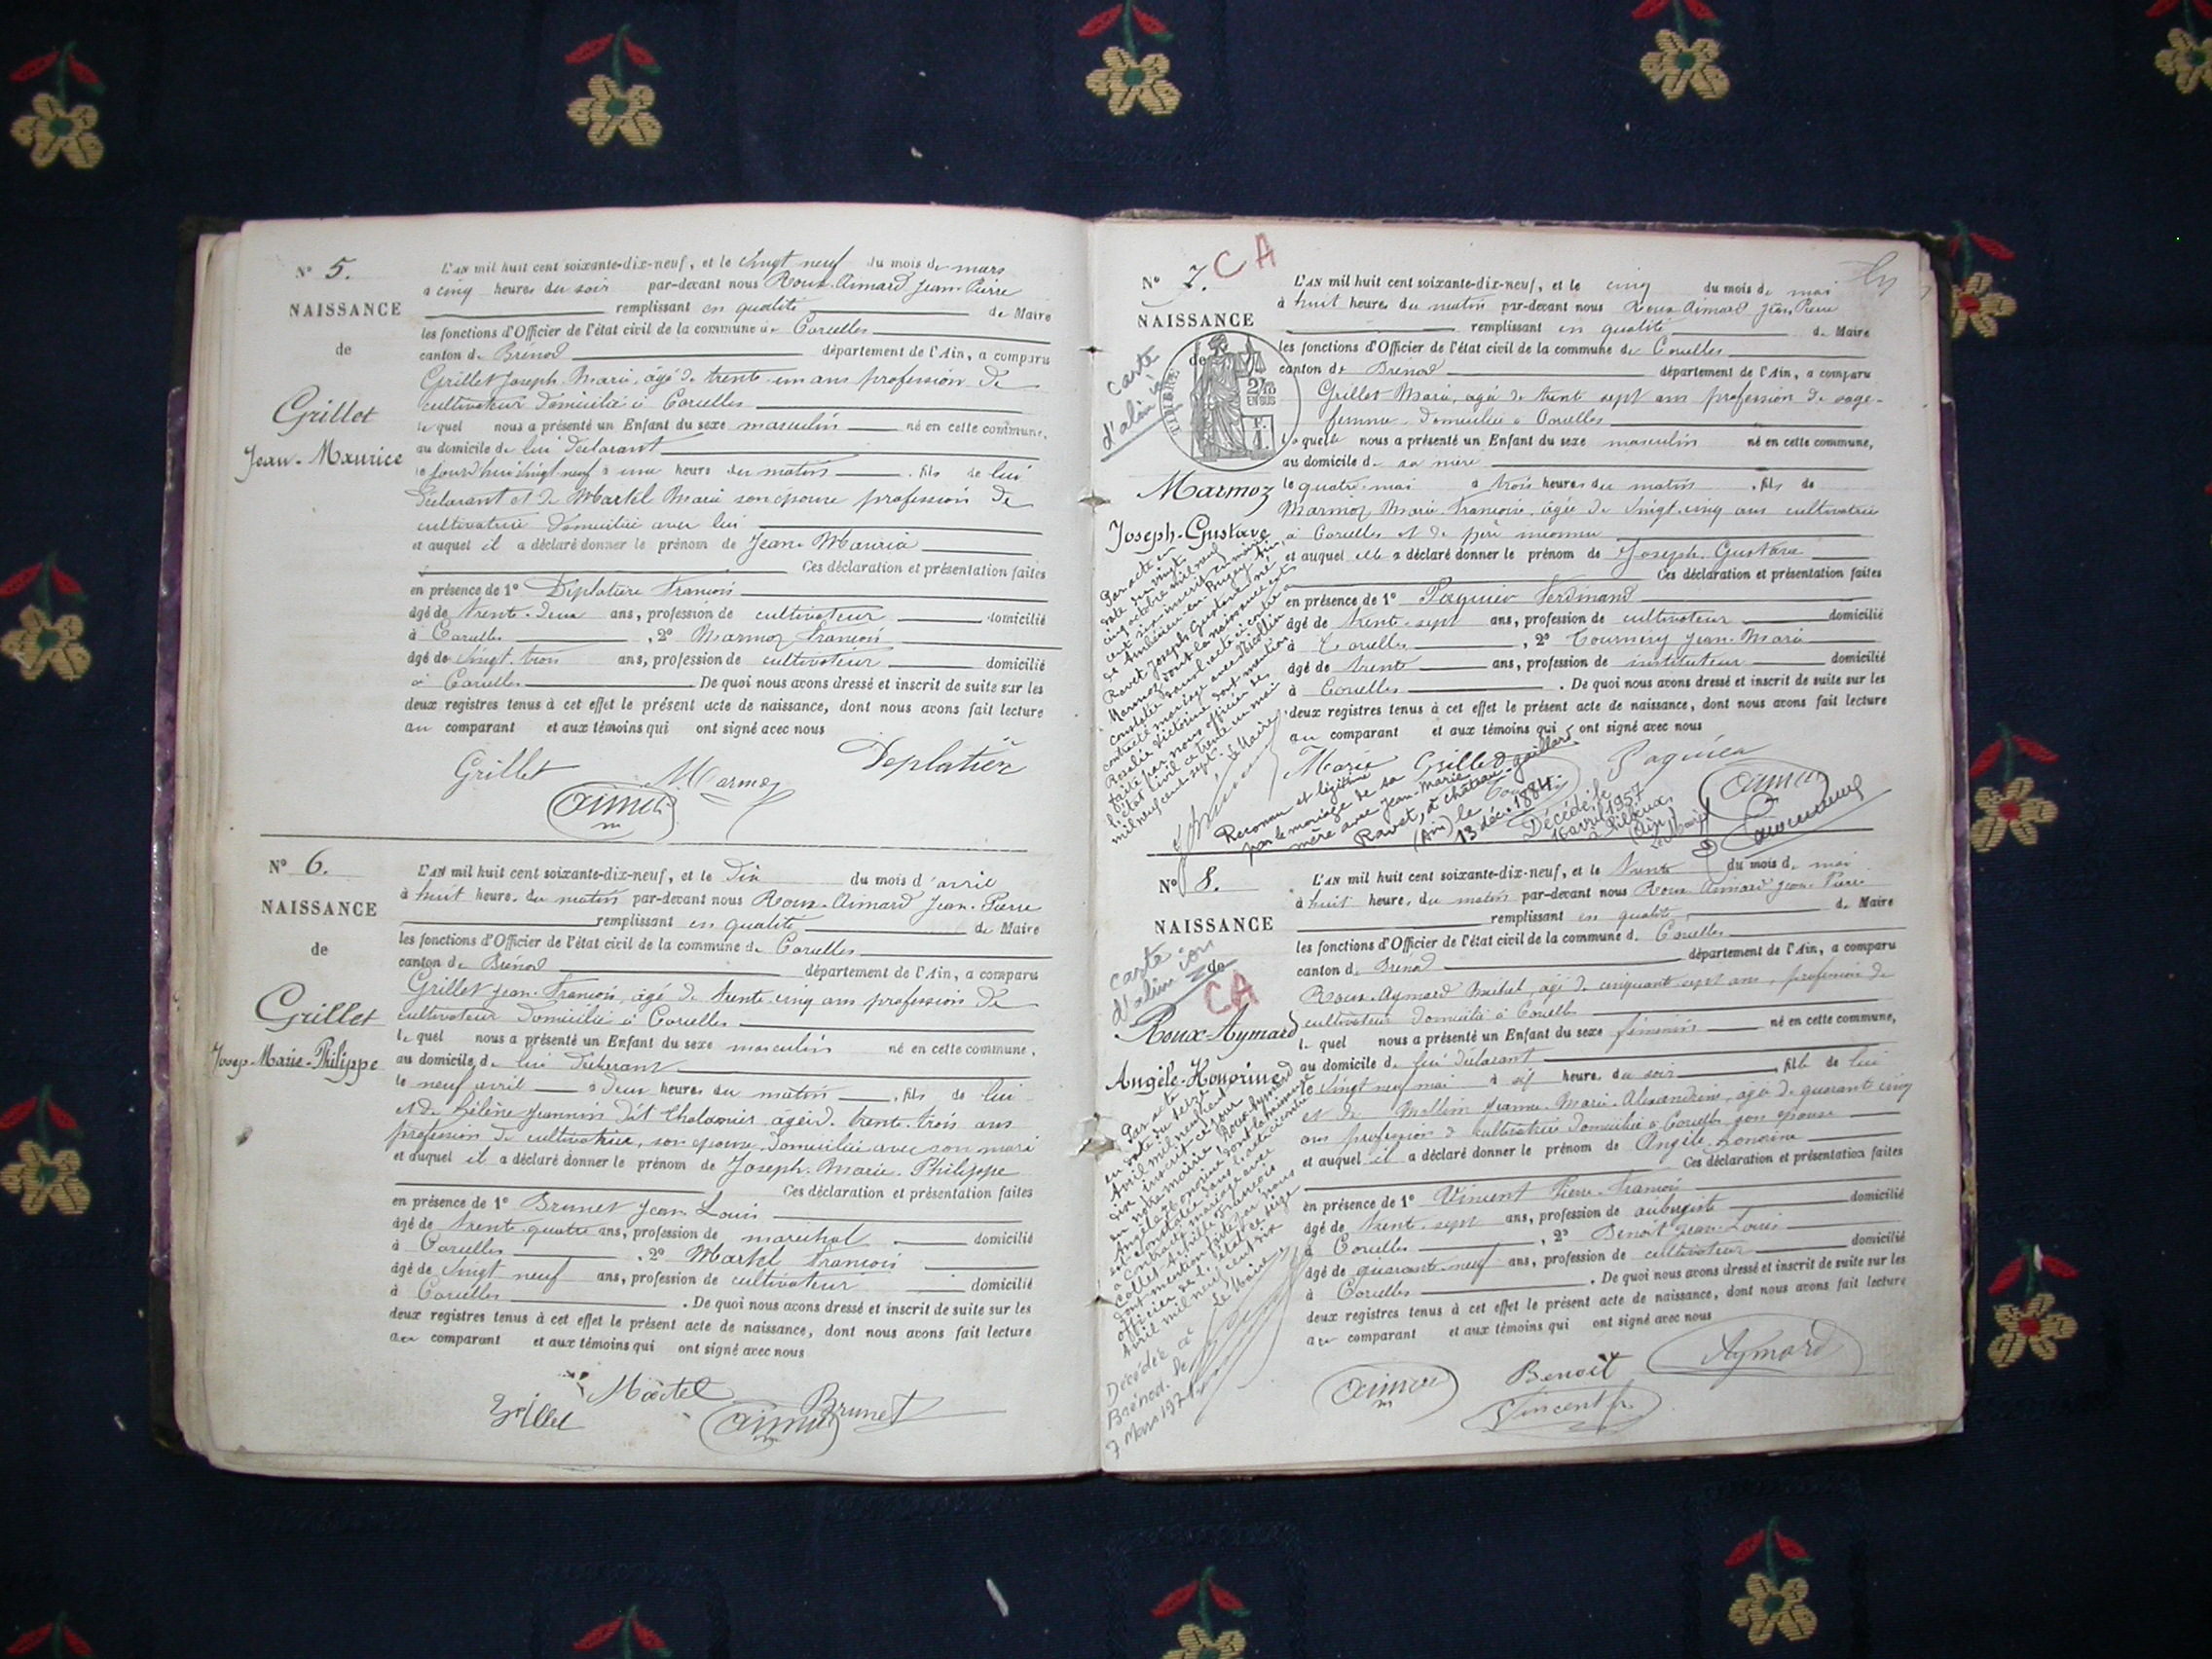 N° 5.
NAISSANCE
de
Grillet
Jean-Maurice
L'AN mil huit cent soixante-dix-neuf, et le vingt neuf du mois de mars
à cinq heures du soir par-devant nous Roux-Aimard Jean-Pierre
remplissant en qualité de Maire
les fonctions d'Officier de l'état civil de la commune de Corcelles
canton de Brénod département de l'Ain, a comparu
Grillet Joseph Marie, âgé de trente un ans profession de
cultivateur domicilié à Corcelles
lequel nous a présenté un Enfant du sexe masculin né en cette commune,
au domicile de lui déclarant
le jourd'hui vingt neuf à une heure du matin, fils de lui
déclarant et de Martel Marie son épouse profession de
cultivatrice domiciliée avec lui
et auquel il a déclaré donner le prénom de Jean-Maurice
Ces déclaration et présentation faites
en présence de 1° Déplatière François
âgé de trente-deux ans, profession de cultivateur domicilié
à Corcelles, 2° Marmoz François
âgé de vingt-trois ans, profession de cultivateur domicilié
à Corcelles. De quoi nous avons dressé et inscrit de suite sur les
deux registres tenus à cet effet le présent acte de naissance, dont nous avons fait lecture
au comparant et aux témoins qui ont signé avec nous
Grillet Marmoz Deplatière
N° 6.
NAISSANCE
de
Grillet
Josep-Marie-Philippe
L'AN mil huit cent soixante-dix-neuf, et le dix du mois d'avril
à huit heures du matin par-devant nous Roux-Aimard Jean-Pierre
remplissant en qualité de Maire
les fonctions d'Officier de l'état civil de la commune de Corcelles
canton de Brénod département de l'Ain, a comparu
Grillet Jean-François, âgé de trente-cinq ans profession de
cultivateur domicilié à Corcelles
lequel nous a présenté un Enfant du sexe masculin né en cette commune,
au domicile de lui déclarant
le neuf avril à deux heures du matin, fils de lui
et de Hélène Jeannin dit âgée de trente-trois ans
profession de cultivatrice, son épouse domiciliée avec son mari
et auquel il a déclaré donner le prénom de Joseph-Marie-Philippe
Ces déclaration et présentation faites
en présence de 1° Brunet Jean Louis
âgé de trente-quatre ans, profession de maréchal domicilié
à Corcelles, 2° Martel François
âgé de vingt neuf ans, profession de cultivateur domicilié
à Corcelles. De quoi nous avons dressé et inscrit de suite sur les
deux registres tenus à cet effet le présent acte de naissance, dont nous avons fait lecture
au comparant et aux témoins qui ont signé avec nous
Grillet Martel Brunet
N° 7. CA
NAISSANCE
de
carte
d'alim
TIMBRE
Marmoz
Joseph-Gustave
L'AN mil huit cent soixante-dix-neuf, et le cinq du mois de mai
à huit heures du matin par-devant nous Roux Aimard Jean-Pierre
remplissant en qualité de Maire
les fonctions d'Officier de l'état civil de la commune de Corcelles
canton de Brénod département de l'Ain, a comparu
Grillet Marie, âgée de trente sept ans profession de sage-
femme domiciliée à Corcelles
laquelle nous a présenté un Enfant du sexe masculin né en cette commune,
au domicile de sa mère
le quatre mai à trois heures du matin, fils de
Marmoz Marie Françoise, âgée de vingt-cinq ans cultivatrice
à Corcelles et de père inconnu
et auquel elle a déclaré donner le prénom de Joseph-Gustave
Ces déclaration et présentation faites
en présence de 1° Paquier Ferdinand
âgé de trente-sept ans, profession de cultivateur domicilié
à Corcelles, 2° Tournery Jean-Marie
âgé de trente ans, profession de instituteur domicilié
à Corcelles. De quoi nous avons dressé et inscrit de suite sur les
deux registres tenus à cet effet le présent acte de naissance, dont nous avons fait lecture
au comparant et aux témoins qui ont signé avec nous
Marie Grillet
Reconnu et légitimé
par le mariage de sa
mère avec Jean-Marie
Ravet, à Château-Gaillard
(Ain) le 13 déc. 1884.
Décédé le
16 avril 1957
(Ain)
Le Maire
N° 8.
NAISSANCE
de
carte
d'alim ion
CA
Roux-Aymard
Angèle-Honorine
L'AN mil huit cent soixante-dix-neuf, et le trente du mois de mai
à huit heures du matin par-devant nous Roux Aimard Jean-Pierre
remplissant en qualité de Maire
les fonctions d'Officier de l'état civil de la commune de Corcelles
canton de Brénod département de l'Ain, a comparu
Roux-Aymard Michel, âgé de cinquante sept ans, profession de
cultivateur domicilié à Corcelles
lequel nous a présenté un Enfant du sexe féminin né en cette commune,
au domicile de lui déclarant
le vingt neuf mai à six heures du soir, fille de lui
et de Jeanne-Marie-Alexandrine, âgée de quarante cinq
ans profession de cultivatrice domiciliée à Corcelles son épouse
et auquel il a déclaré donner le prénom de Angèle-Honorine
Ces déclaration et présentation faites
en présence de 1° Vincent Pierre-François
âgé de trente-sept ans, profession de aubergiste domicilié
à Corcelles, 2° Benoit Jean-Louis
âgé de quarante-neuf ans, profession de cultivateur domicilié
à Corcelles. De quoi nous avons dressé et inscrit de suite sur les
deux registres tenus à cet effet le présent acte de naissance, dont nous avons fait lecture
au comparant et aux témoins qui ont signé avec nous
Benoit Aymard
Vincent
Décédée à
Brénod le
7 Mars